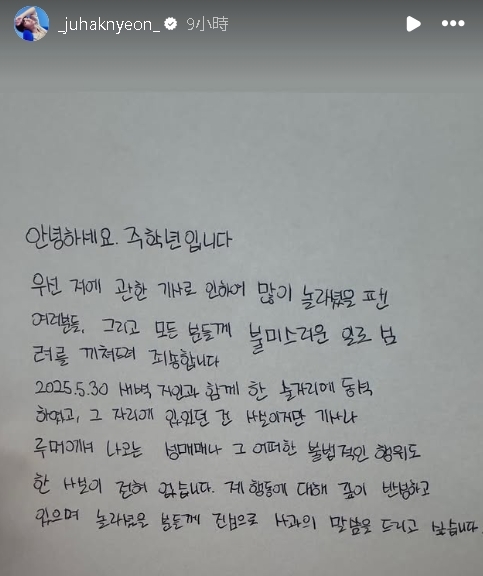 _juhaknyeon_ 9小時
안녕하세요. 주학년입니다
우선 저에 관한 기사로 인하여 많이 놀라셨을 팬
여러분들, 그리고 모든 분들께 불미스러운 일로 심
려를 끼쳐드려 죄송합니다
2025.5.30 새벽 지인과 함께 한 술자리에 동석
하였고, 그 자리에 있었던 건 사실이지만 기사나
루머에서 나오는 성매매나 그 어떠한 불법적인 행위도
한 사실이 전혀 없습니다. 제 행동에 대해 깊이 반성하고
있으며 놀라셨을 분들께 진심으로 사과의 말씀을 드리고 싶습니다.